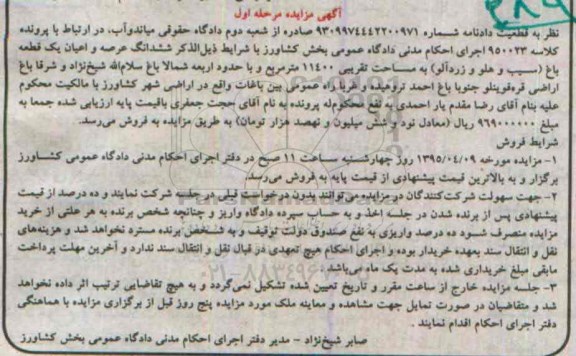 آگهی مزایده مرحله اول
نظر به قطعیت دادنامه شماره ۹۳۰۹۹۷۴۴۴۲۲۰۰۹۷۱ صادره از شعبه دوم دادگاه حقوقی میاندوآب، در ارتباط با پرونده
کلاسه ۹۵۰۰۲۳ اجرای احکام مدنی دادگاه عمومی بخش کشاورز با شرایط ذیل‌الذکر ششدانگ عرصه و اعیان یک قطعه
باغ (سیب و هلو و زردآلو) به مساحت تقریبی ۱۱۴۰۰ مترمربع و با حدود اربعه شمالا باغ سلام‌الله شیخ‌نژاد و شرقا باغ
اراضی قره‌قوینلو جنوبا باغ احمد نروهیده و غربا راه عمومی بین باغات واقع در اراضی شهر کشاورز با مالکیت محکوم
علیه بنام آقای رضا مقدم یار احمدی به نفع محکوم‌له پرونده به نام آقای حجت جعفری باقیمت پایه ارزیابی شده جمعا به
مبلغ ۹۶۹۰۰۰۰۰۰ ریال (معادل نود و شش میلیون و نهصد هزار تومان) به طریق مزایده به فروش می‌رسد.
شرایط فروش
۱- مزایده مورخه ۱۳۹۵/۰۴/۰۹ روز چهارشنبه ساعت ۱۱ صبح در دفتر اجرای احکام مدنی دادگاه عمومی کشاورز
برگزار و به بالاترین قیمت پیشنهادی از قیمت پایه به فروش می‌رسد.
۲- جهت سهولت شرکت‌کنندگان در مزایده می‌توانند بدون درخواست قبلی در جلسه شرکت نمایند و ده درصد از قیمت
پیشنهادی پس از برنده شدن در جلسه اخذ و به حساب سپرده دادگاه واریز و چنانچه شخص برنده به هر علتی از خرید
مزایده منصرف شود ده درصد واریزی به نفع صندوق دولت توقیف و به شخص برنده مسترد نخواهد شد و هزینه‌های
نقل و انتقال سند بعهده خریدار بوده و اجرای احکام هیچ تعهدی در قبال نقل و انتقال سند ندارد و آخرین مهلت پرداخت
مابقی مبلغ خریداری شده به مدت یک ماه می‌باشد.
۳- جلسه مزایده خارج از ساعت مقرر و تاریخ تعیین شده تشکیل نمی‌گردد و به هیچ تقاضایی ترتیب اثر داده نخواهد
شد و متقاضیان در صورت تمایل جهت مشاهده و معاینه ملک مورد مزایده پنج روز قبل از برگزاری مزایده با هماهنگی
دفتر اجرای احکام اقدام نمایند.
صابر شیخ‌نژاد - مدیر دفتر اجرای احکام مدنی دادگاه عمومی بخش کشاورز